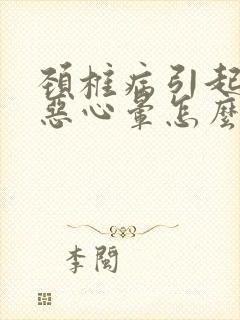 頚椎病引起
惡心暈怎麼
李闖